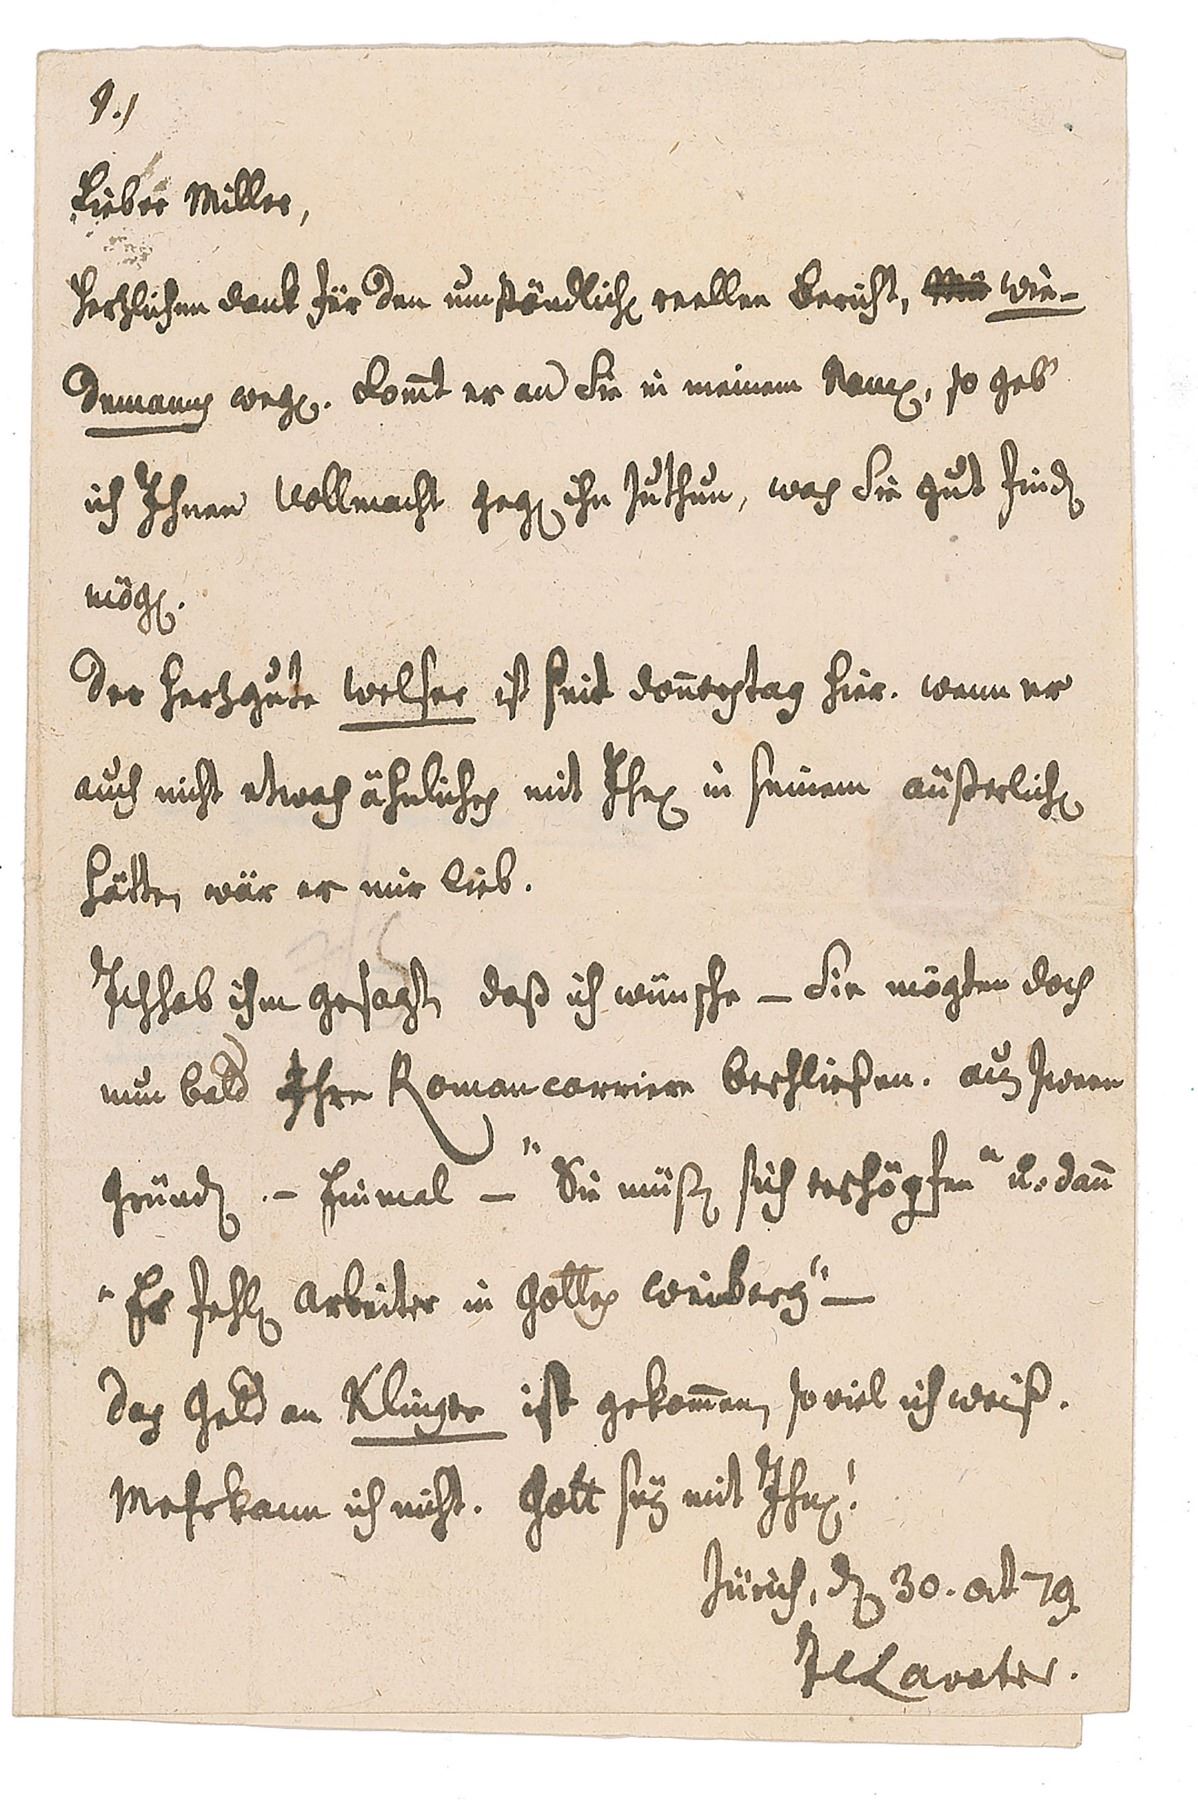 1.)
Lieber Miller,
Herzlichen dank für den umständlichen reellen bericht, Wie-
demanns wegen. Kom̄t er an Sie in meinem Namen, so geb'
ich Ihnen Vollmacht gegen ihn zuthun, was Sie gut finden
mögen.
Der herzgute Welser ist seit don̄erstag hier. wenn er
auch nicht etwas ähnliches mit Ihnen in seinem äußerlichen
hätte, wär er mir lieb.
Ich hab ihm gesagt, daß ich wünsche – Sie mögten doch
nun bald Ihre Romancarriere beschließen. aus zween
Gründen. – Einmal – "Sie müßen sich erschöpfen" u. dan̄
"Es fehlen Arbeiter in Gottes Weinberg" –
das Geld an Klinger ist gekom̄en, so viel ich weiß.
Mehr kann ich nicht. Gott sey mit Ihnen!
Zürich, den 30. Oct 79.
JCLavater.